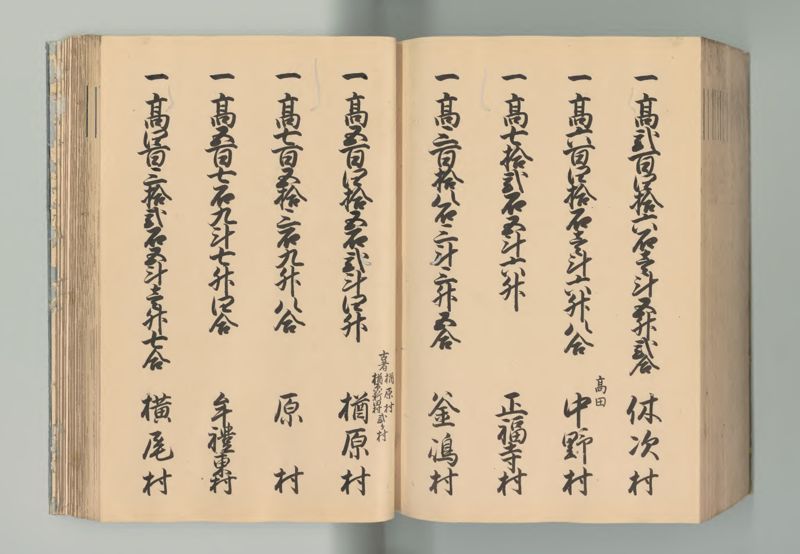 一 高弐百四拾六石壱斗五升弐合 休次村
一 高六百四拾石壱斗六升八合 高田 中野村
一 高七拾弐石五斗六升 正福寺村
一 高三百拾八石三斗三升五合 釜嶋村
一 高五百四拾五石弐斗四升 楢原村
古者 楢原村
楢原新田村 弐ヶ村
一 高七百五拾三石九升八合 原村
一 高五百七石九斗七升四合 牟禮東村
一 高四百三拾弐石五斗壱升七合 横尾村